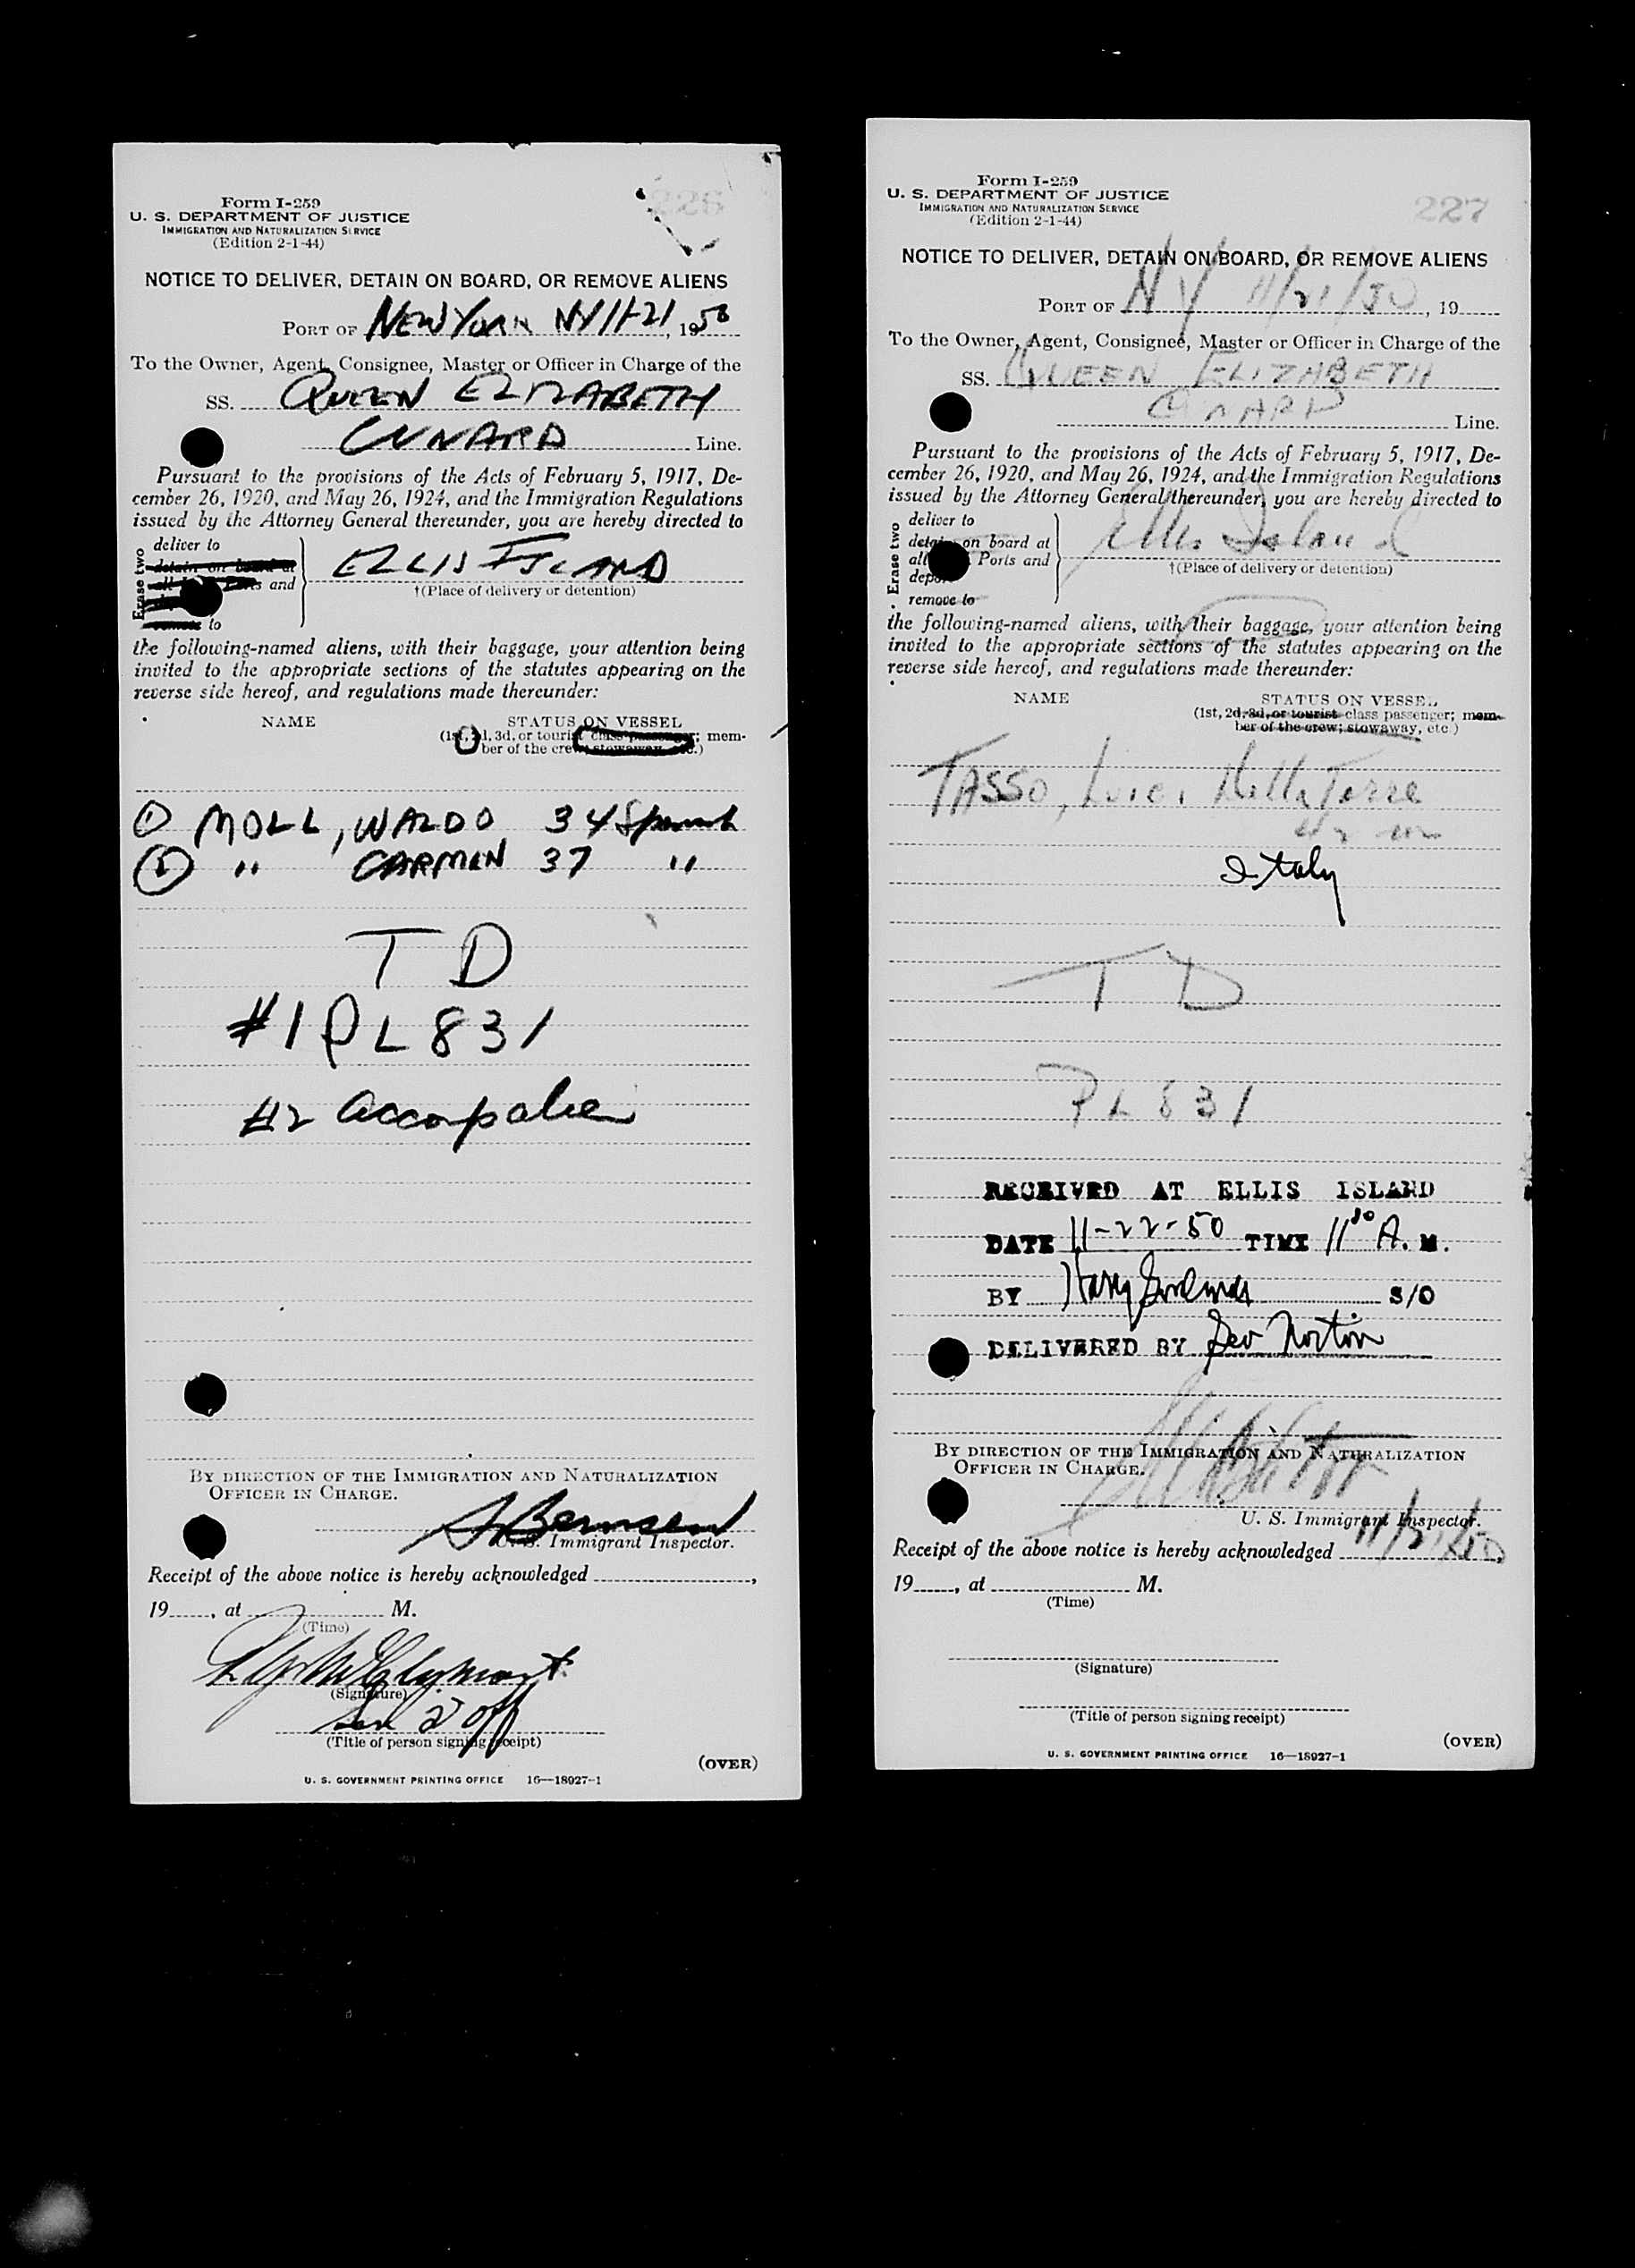 Form I-259
U. S. DEPARTMENT OF JUSTICE
IMMIGRATION AND NATURALIZATION SERVICE
(Edition 2-1-44)
226
NOTICE TO DELIVER, DETAIN ON BOARD, OR REMOVE ALIENS
PORT OF NEW YORK NY 11-21, 1950
To the Owner, Agent, Consignee, Master or Officer in Charge of the
SS. QUEEN ELIZABETH
CUNARD Line.
Pursuant to the provisions of the Acts of February 5, 1917, De-
cember 26, 1920, and May 26, 1924, and the Immigration Regulations
issued by the Attorney General thereunder, you are hereby directed to
Erase two
deliver to
detain on board at
all Ports and
remove to
ELLIS ISLAND
†(Place of delivery or detention)
the following-named aliens, with their baggage, your attention being
invited to the appropriate sections of the statutes appearing on the
reverse side hereof, and regulations made thereunder:
NAME STATUS ON VESSEL
(1st, 2d, 3d, or tourist class passenger; mem-
ber of the crew; stowaway, etc.)
① MOLL, WALDO 34 Spanish
② " CARMEN 37 "
T D
#1 PL 831
#2
BY DIRECTION OF THE IMMIGRATION AND NATURALIZATION
OFFICER IN CHARGE.
U. S. Immigrant Inspector.
Receipt of the above notice is hereby acknowledged ,
19 , at M.
(Time)
(Signature)
(Title of person signing receipt)
(OVER)
U. S. GOVERNMENT PRINTING OFFICE 16—18927-1
Form I-259
U. S. DEPARTMENT OF JUSTICE
IMMIGRATION AND NATURALIZATION SERVICE
(Edition 2-1-44)
227
NOTICE TO DELIVER, DETAIN ON BOARD, OR REMOVE ALIENS
PORT OF NY 11/21/50, 19
To the Owner, Agent, Consignee, Master or Officer in Charge of the
SS. QUEEN ELIZABETH
CUNARD Line.
Pursuant to the provisions of the Acts of February 5, 1917, De-
cember 26, 1920, and May 26, 1924, and the Immigration Regulations
issued by the Attorney General thereunder, you are hereby directed to
Erase two
deliver to
detain on board at
all Ports and
remove to
Ellis Island
†(Place of delivery or detention)
the following-named aliens, with their baggage, your attention being
invited to the appropriate sections of the statutes appearing on the
reverse side hereof, and regulations made thereunder:
NAME STATUS ON VESSEL
(1st, 2d, 3d, or tourist class passenger; mem-
ber of the crew; stowaway, etc.)
TASSO, Della Torre
42
Italy
T D
PL 831
RECEIVED AT ELLIS ISLAND
DATE 11-22-50 TIME 11 A. M.
BY Harry S/O
DELIVERED BY Geo Norton
BY DIRECTION OF THE IMMIGRATION AND NATURALIZATION
OFFICER IN CHARGE.
U. S. Immigrant Inspector.
Receipt of the above notice is hereby acknowledged 11/21/50,
19 , at M.
(Time)
(Signature)
(Title of person signing receipt)
(OVER)
U. S. GOVERNMENT PRINTING OFFICE 16—18927-1